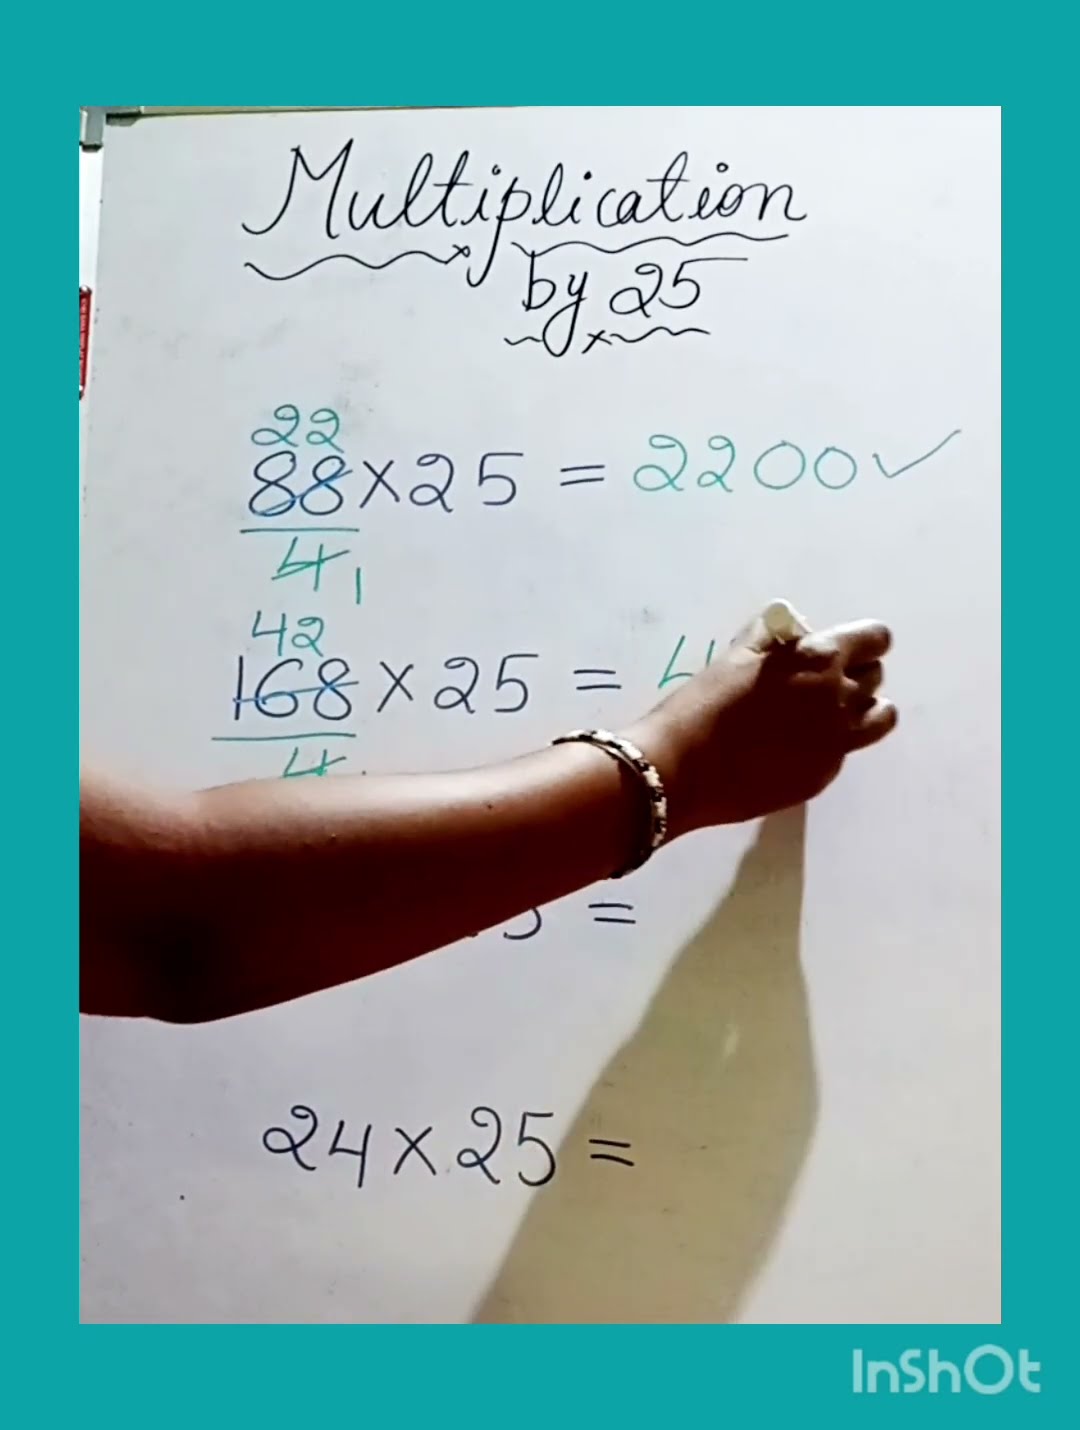 Multiplication
by 25
22
88×25 = 2200✓
4 1
42
168×25 = 4
4
5 =
24×25 =
InShOt